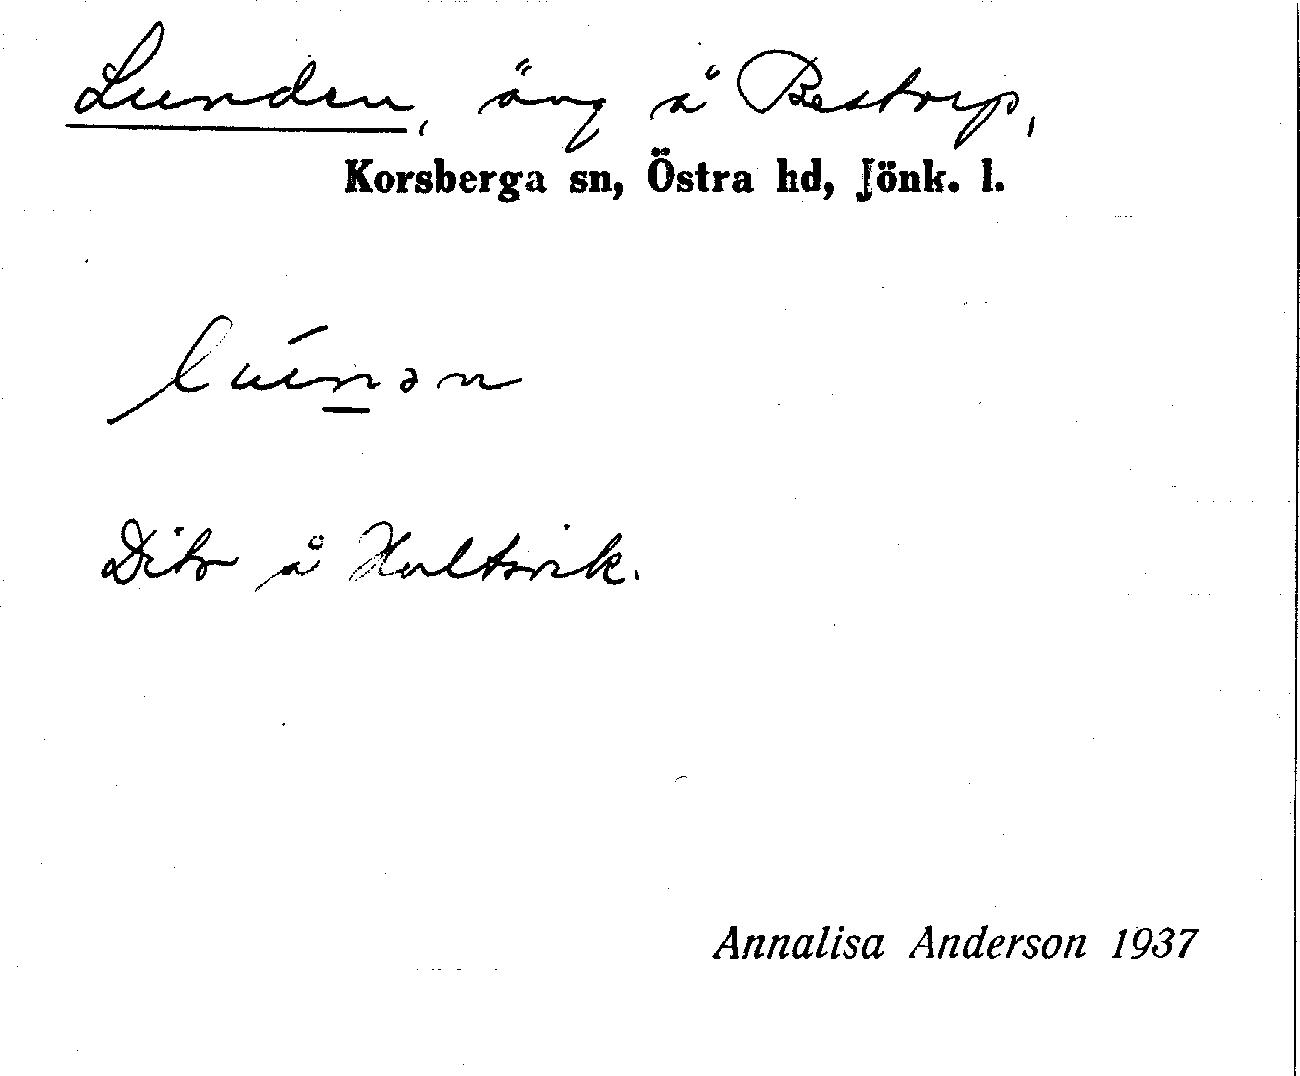 Lunden, äng å Restorp,
Korsberga sn, Östra hd, Jönk. l.
Dito å Holtsvik.
Annalisa Anderson 1937